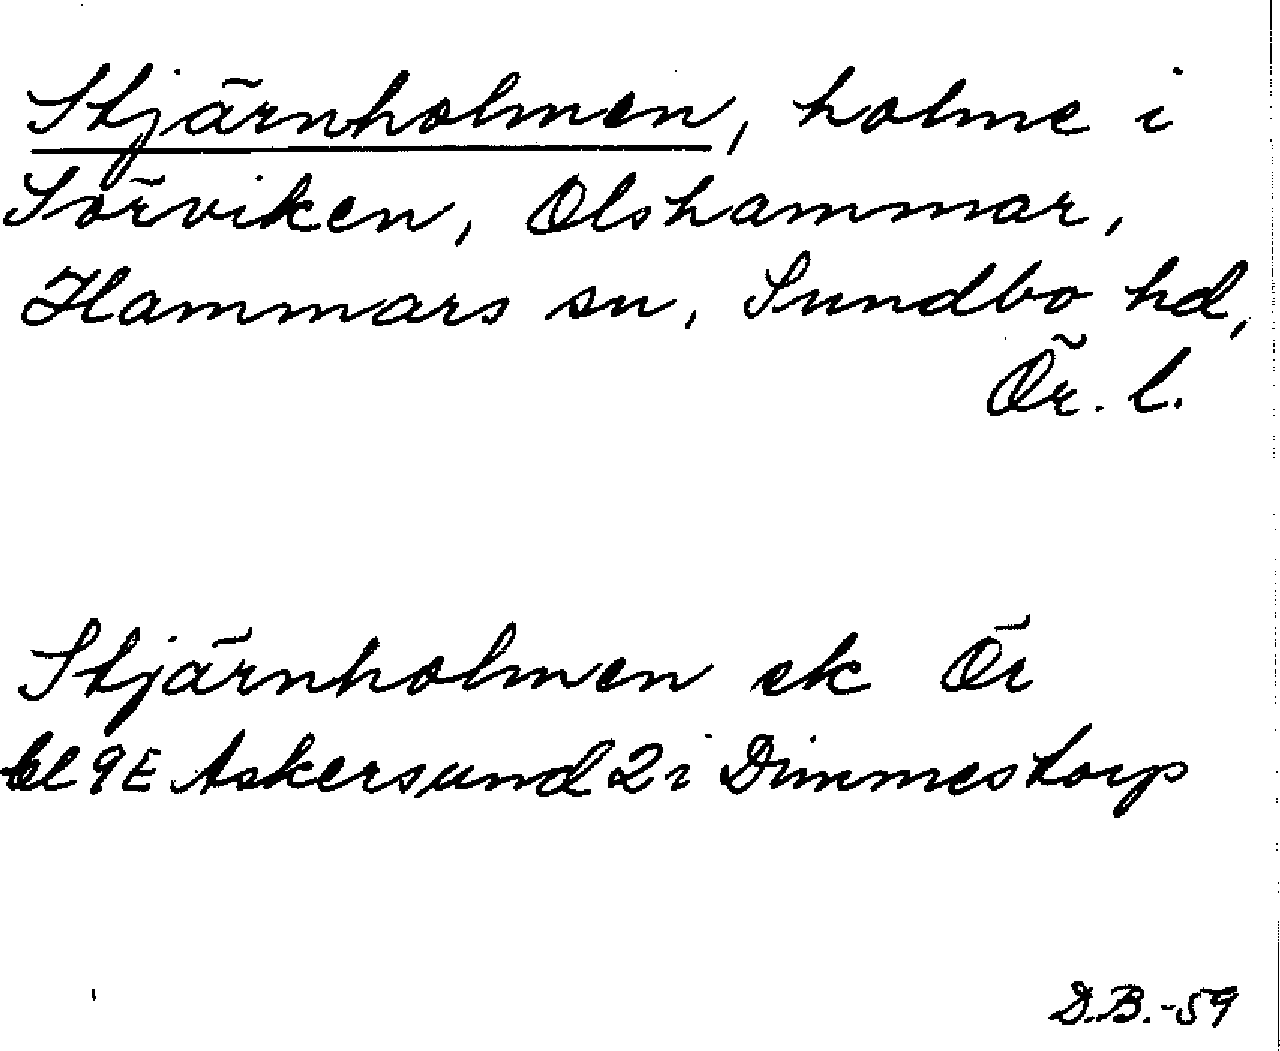 Stjärnholmen, holme i
Sörviken, Olshammar,
Hammars sn, Sundbo hd,
Ör. l.
Stjärnholmen ek Ör
bl 9E Askersund 2 i Dimmestorp
D.B.-59